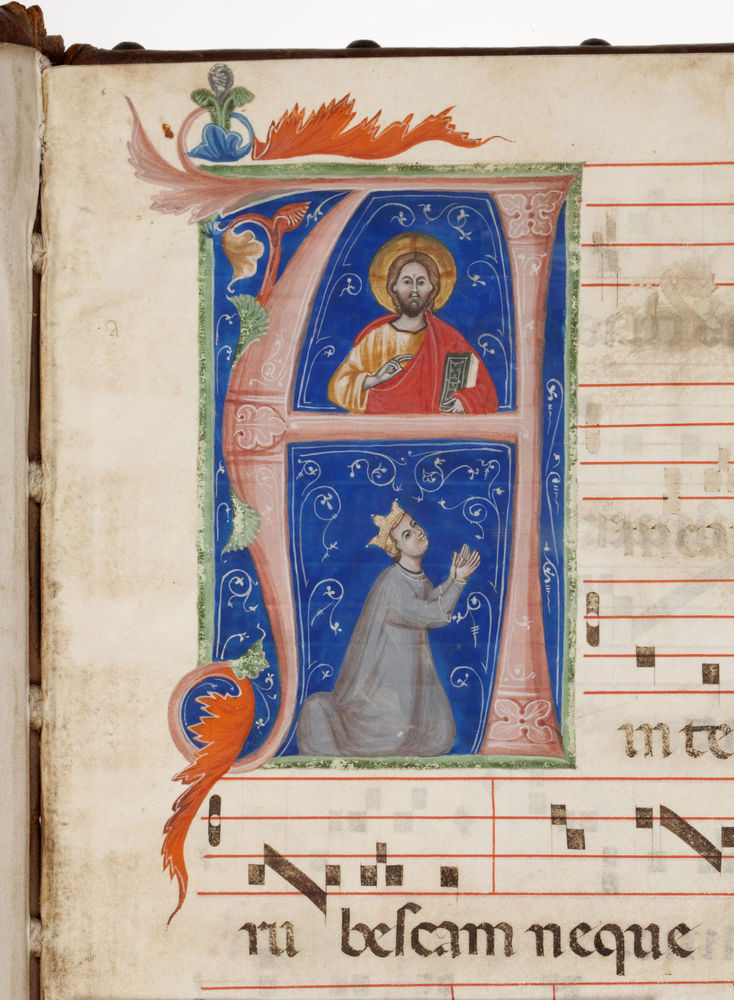 in te
ru bescam neque